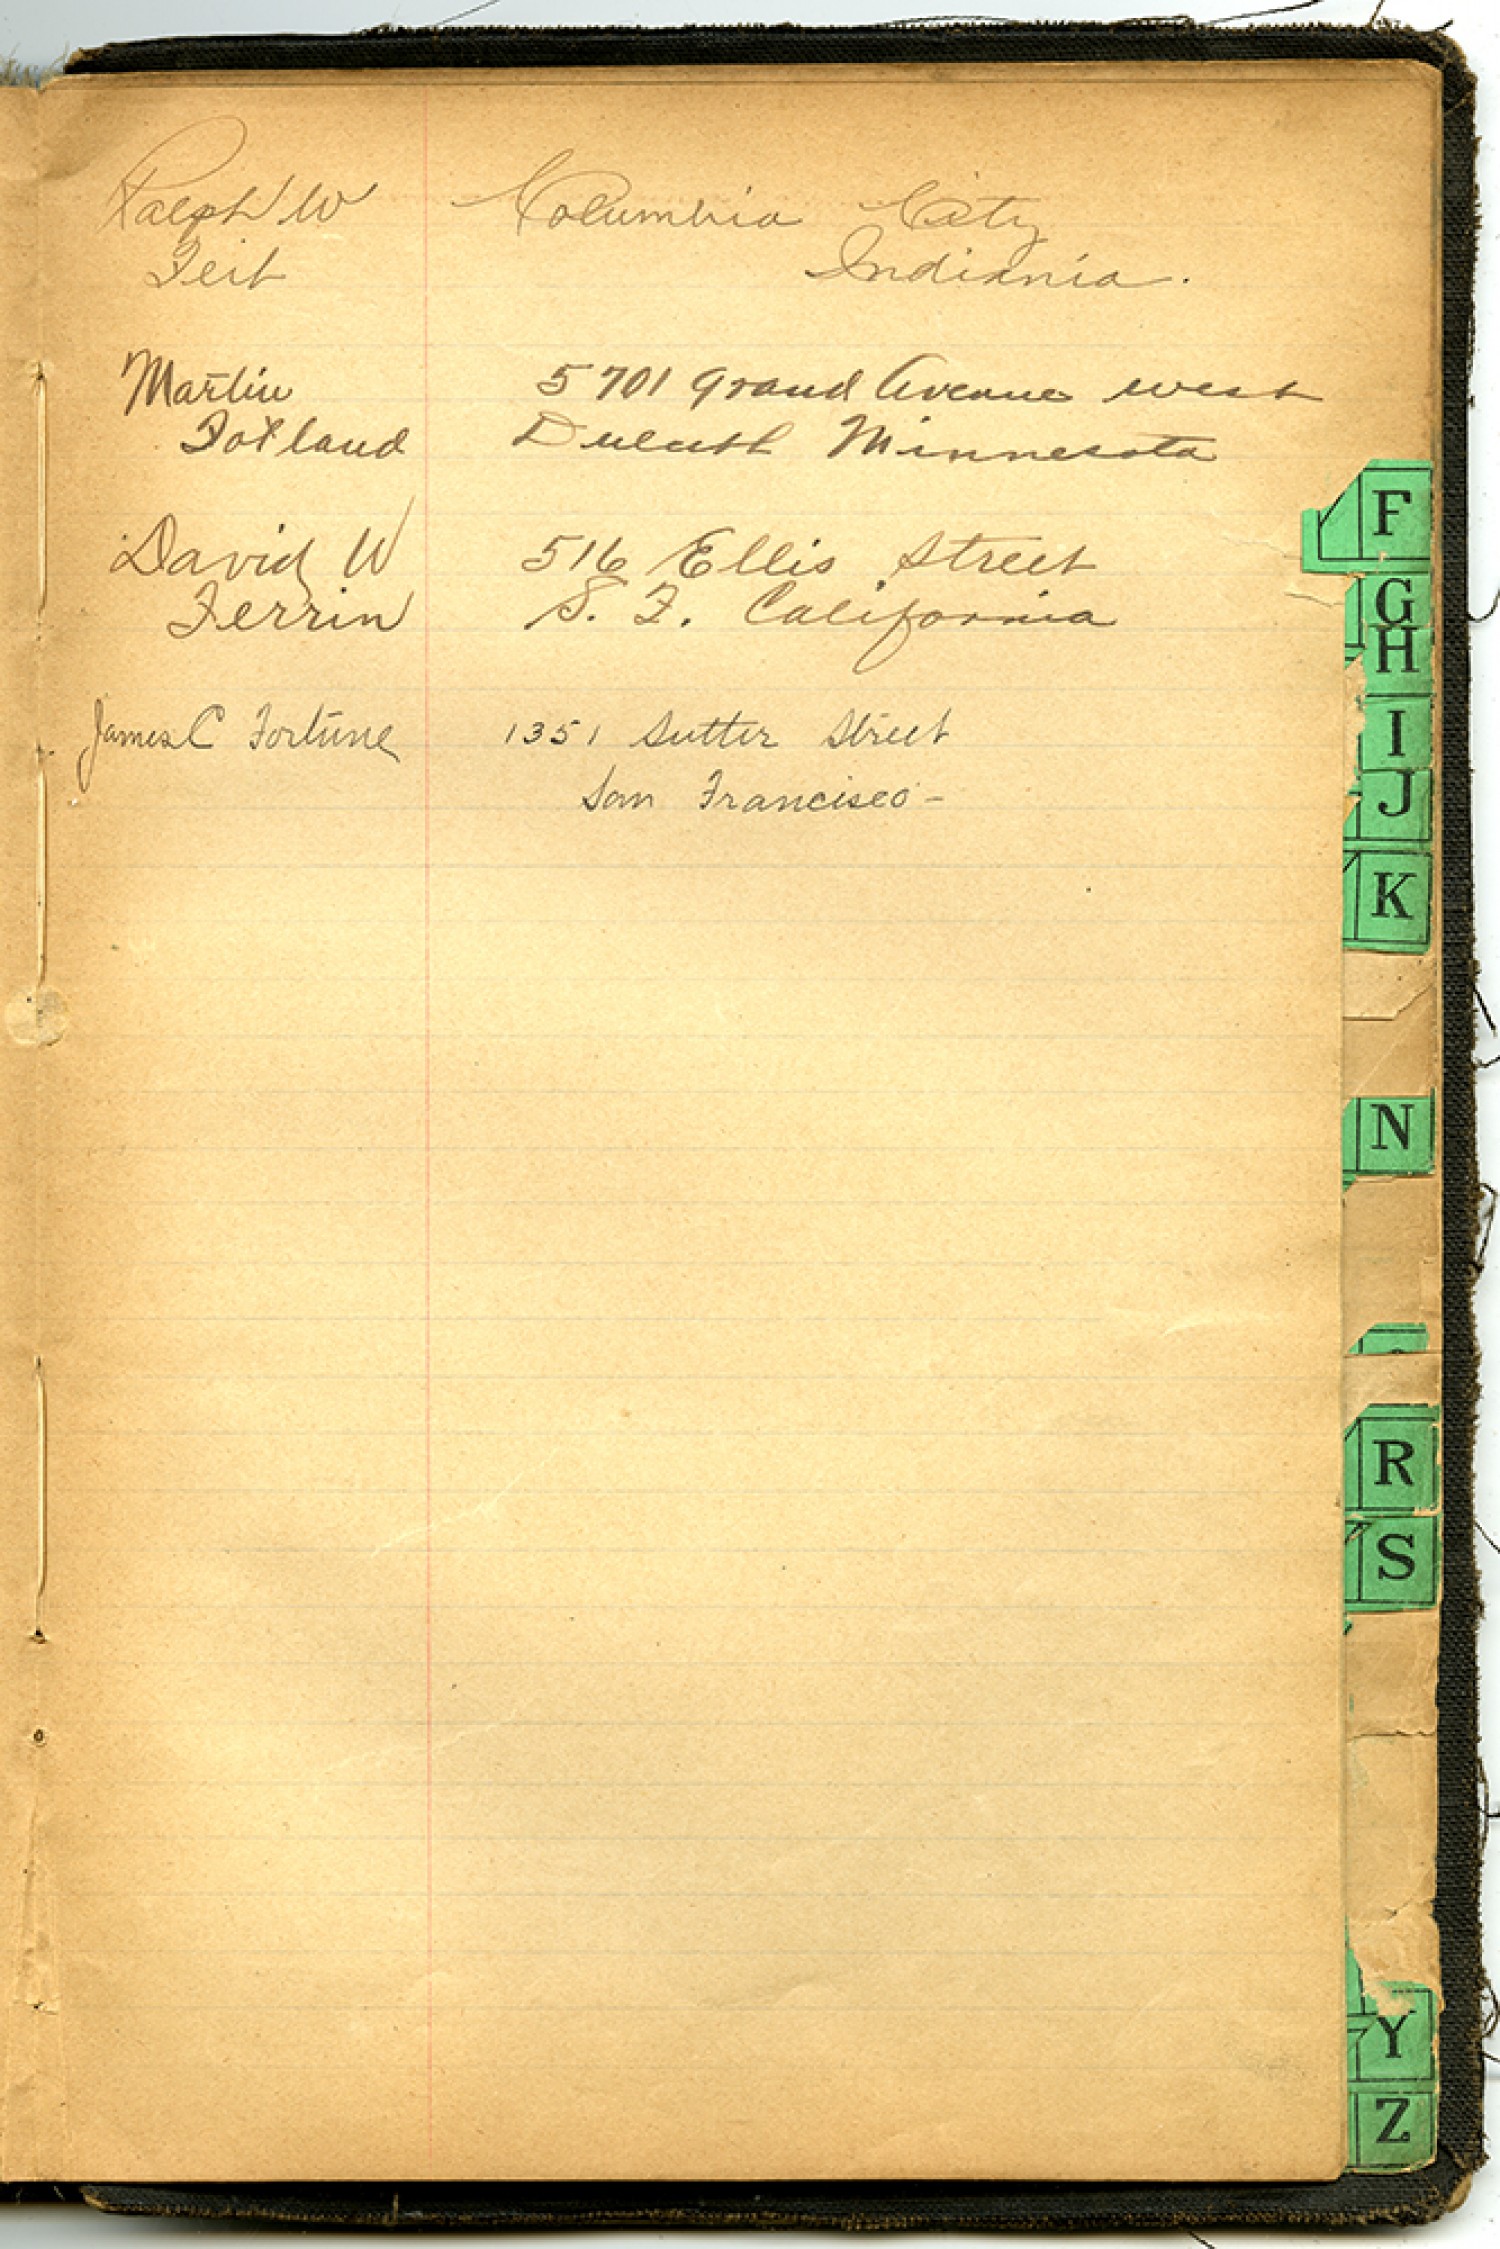 Ralph W Columbia City
Feit Indiania.
Martin 5701 Grand Avenue west
Fotland Duluth Minnesota
David W 516 Ellis Street
Ferrin S. F. California
James C Fortune 1351 Sutter Street
San Francisco -
F
G
H
I
J
K
N
R
S
Y
Z